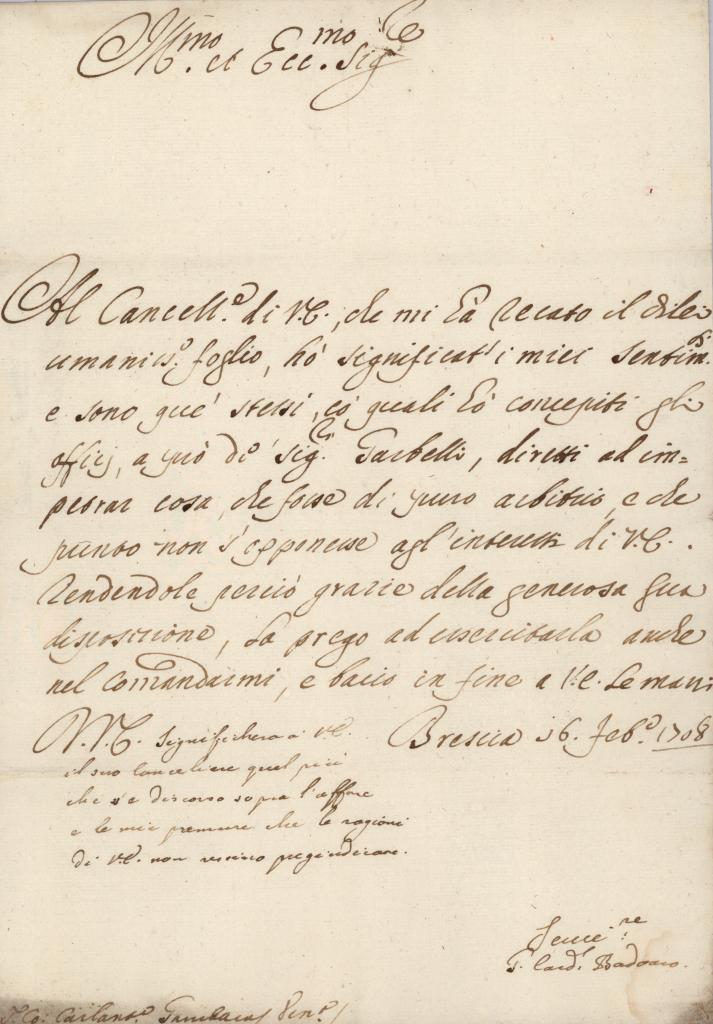 Ill.mo et Ecc.mo Sig.re
Al Cancell.e di V.E., che mi hà recato il di lei
umaniss.o foglio, hò significat'i miei sentim.ti
e sono que' stessi, co' quali hò concepiti gli
officij, a prò di Sig.r Tarbelli, diretti ad im=
petrar cosa, che fosse di puro arbitrio, e che
punto non s'opponesse agl'interessi di V.E.
Rendendole perciò grazie della generosa sua
disposizione, La prego ad esercitarla anche
nel comandarmi, e bacio in fine a V.E. le mani
Brescia 16. Feb.o 1708
V.E. Significherà a V.E.
il suo Cancelliere quel più
che s'è discorso sopra l'affare
e le mie premure che le ragioni
di V.E. non restino pregiudicate.
Ser.re
Card.l Badoaro.
Co: Carlant.o